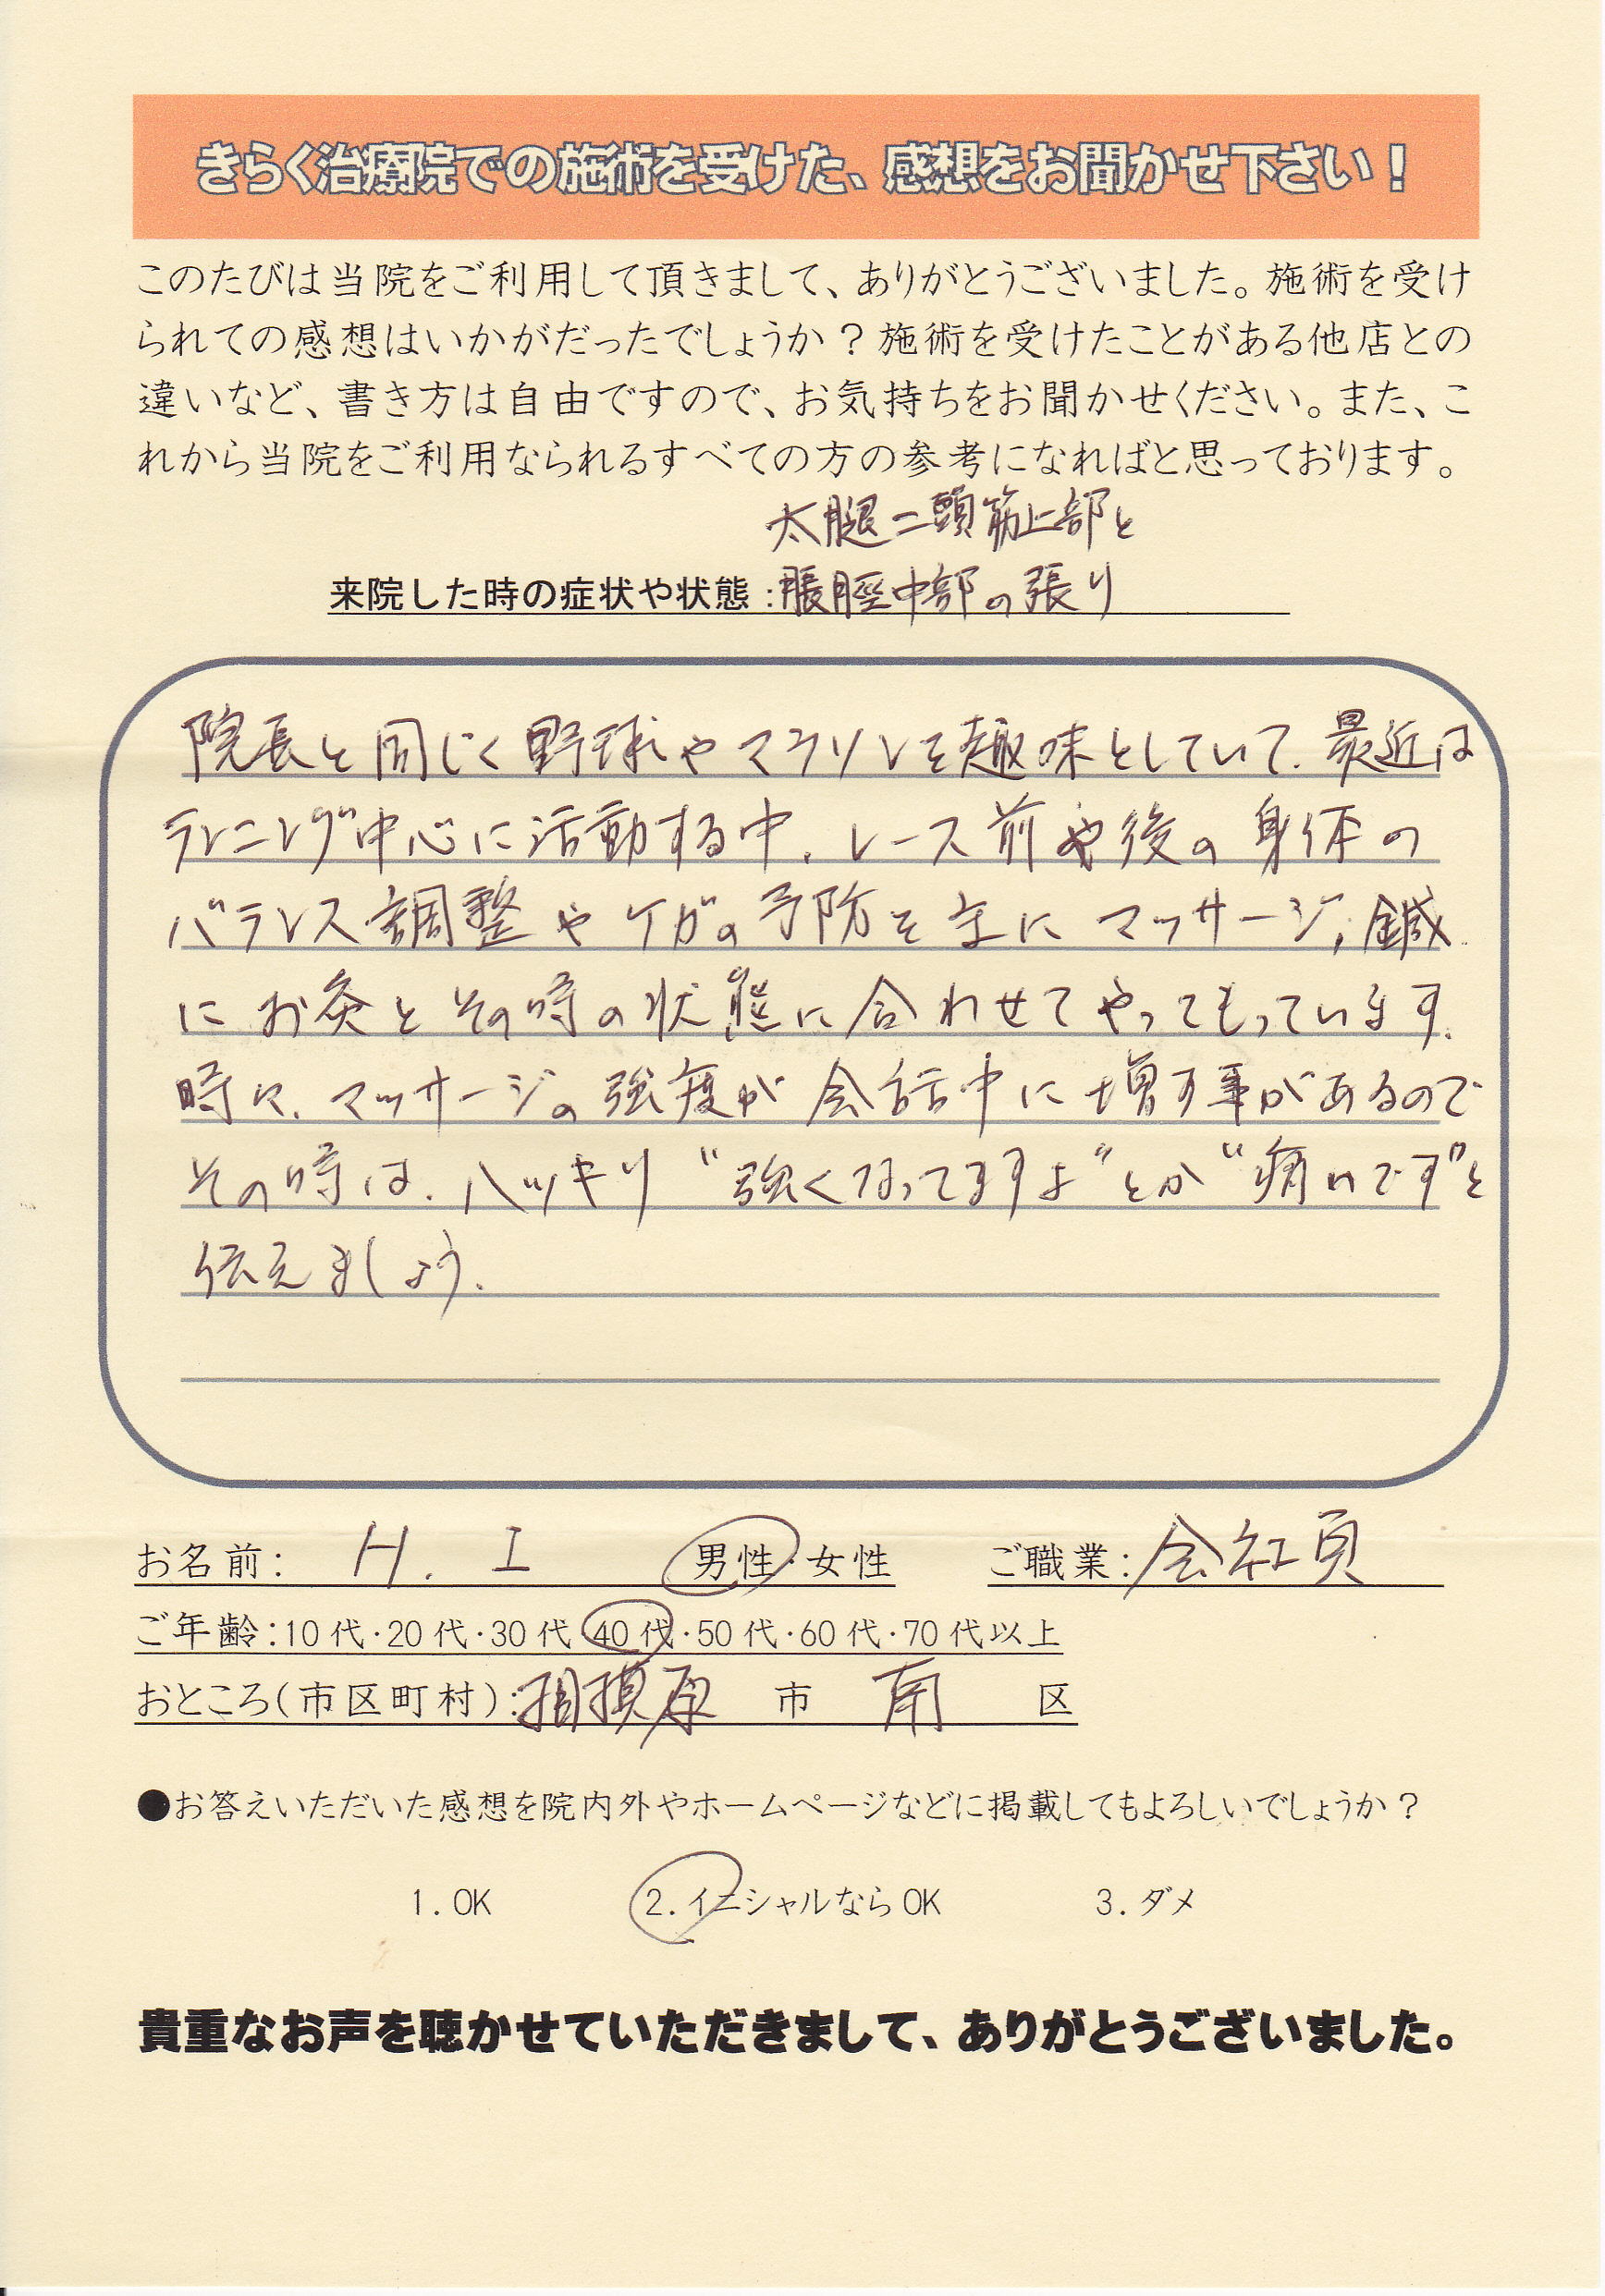 きらく治療院での施術を受けた、感想をお聞かせ下さい！
このたびは当院をご利用して頂きまして、ありがとうございました。施術を受け
られての感想はいかがだったでしょうか？施術を受けたことがある他店との
違いなど、書き方は自由ですので、お気持ちをお聞かせください。また、こ
れから当院をご利用なられるすべての方の参考になればと思っております。
太腿二頭筋上部と
来院した時の症状や状態：脹脛中部の張り
院長と同じく野球やマラソンを趣味としていて、最近は
ランニング中心に活動する中、レース前や後の身体の
バランス調整やケガの予防を主にマッサージ、鍼
にお灸とその時の状態に合わせてやってもっています。
時々、マッサージの強度が会話中に増す事があるので
その時は、ハッキリ“強くなってますよ”とか“痛いです”と
伝えましょう。
お名前： H. I 男性・女性 ご職業：会社員
ご年齢：10代・20代・30代・40代・50代・60代・70代以上
おところ（市区町村）：相模原 市 南 区
●お答えいただいた感想を院内外やホームページなどに掲載してもよろしいでしょうか？
1. OK 2. イニシャルならOK 3. ダメ
貴重なお声を聴かせていただきまして、ありがとうございました。